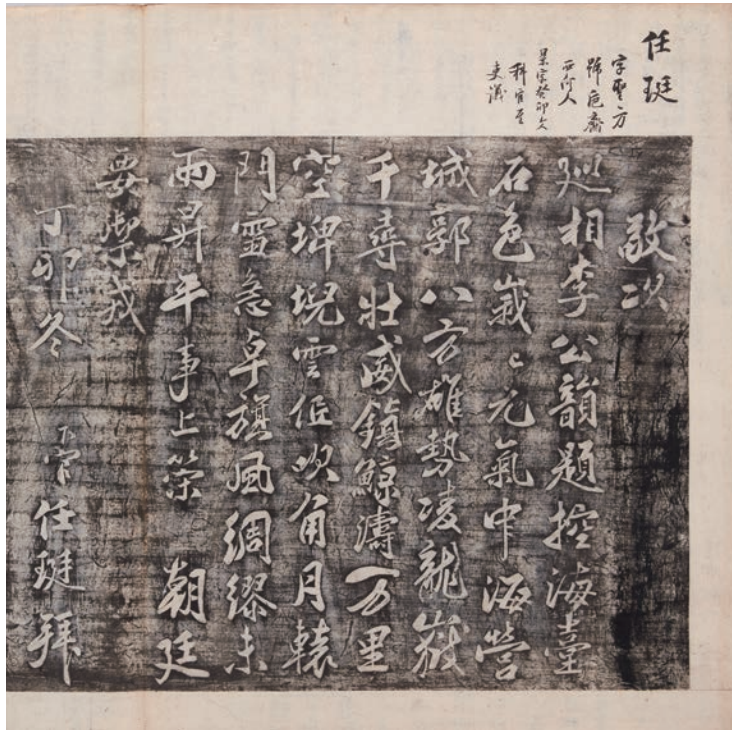 任珽
字聖方
號巵齋
西河人
景宗癸卯文
科官至
吏議
敬次
廵相李公韻題控海臺
石色峩〻元氣中海營
城郭八方雄勢凌龍嶽
千尋壯威鎮鯨濤万里
空埤堄雲低吹角月轅
門雷急卓旗風綢繆未
雨昇平事上策 朝廷
要禦戎
丁卯冬 下官任珽拜